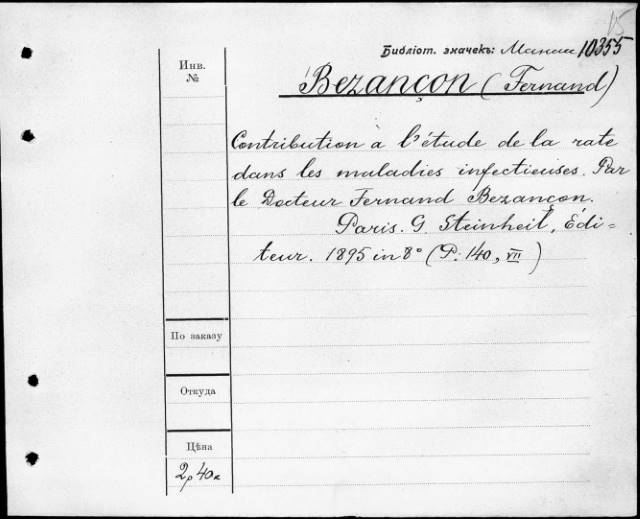 15
Библіот. значекъ: Манас 10355
Инв.
№
Bezançon (Fernand)
Contribution à l'étude de la rate
dans les maladies infectieuses. Par
le Docteur Fernand Bezançon.
Paris. G. Steinheil, Édi=
teur. 1895 in 8° (P. 140, VII)
По заказу
Откуда
Цѣна
2р 40к